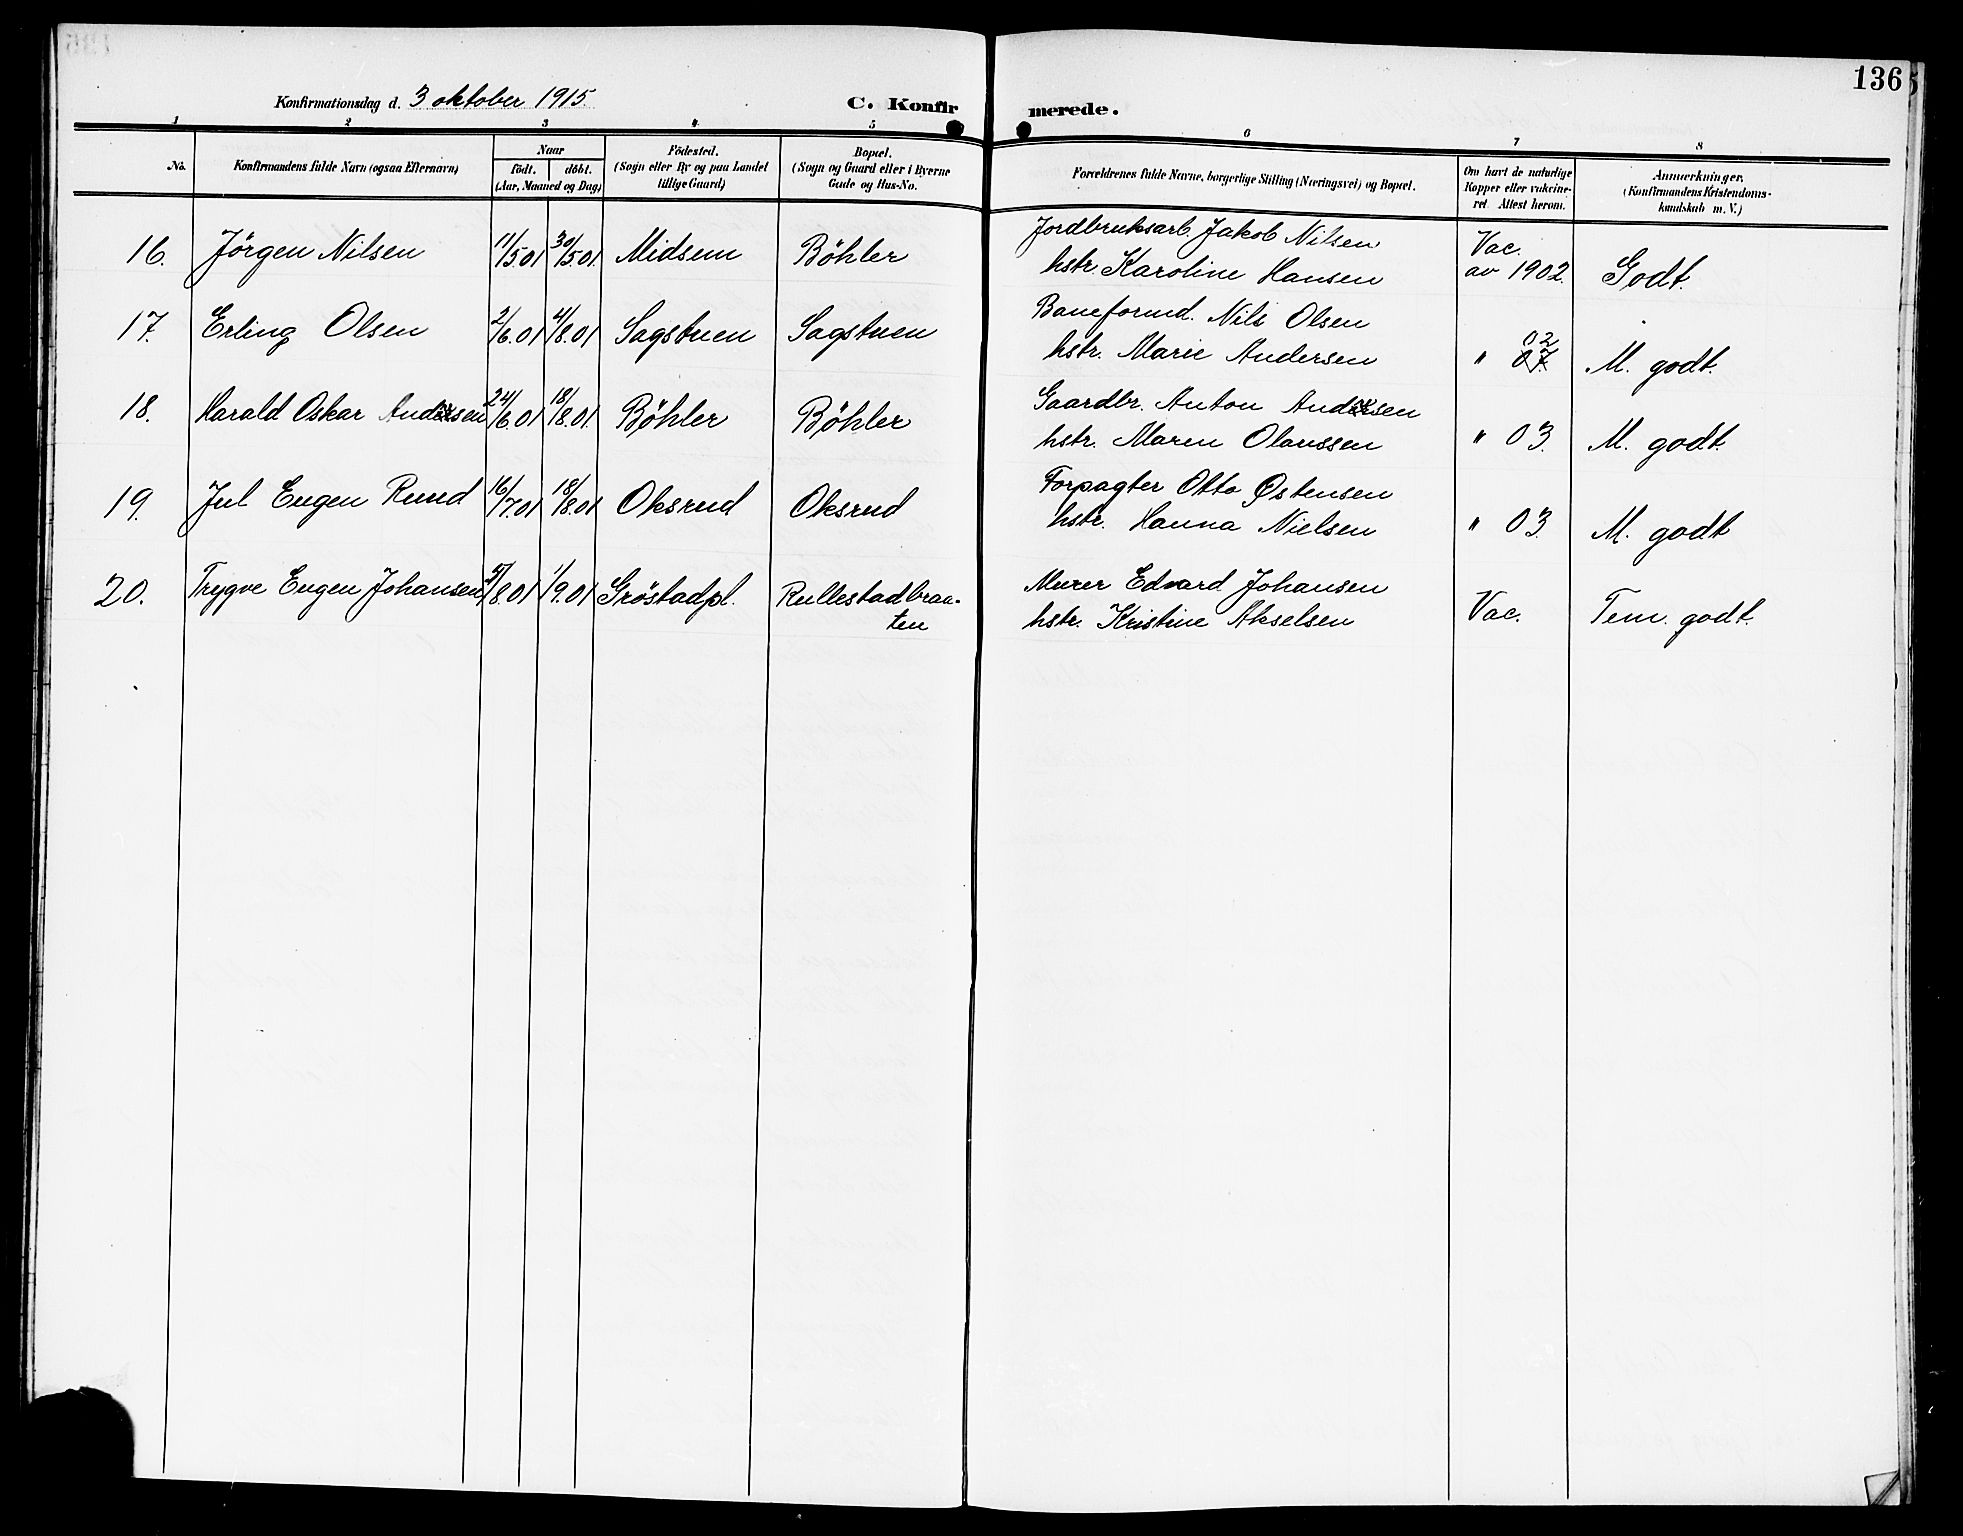 136
Konfirmationsdag d. 3 oktober 1915.
C. Konfirmerede.
1 2 3 4 5 6 7 8
No. Konfirmandens fulde Navn (ogsaa Efternavn) Naar födt. döbt. (Aar, Maaned og Dag) Födested. (Sogn eller By og paa Landet tillige Gaard) Bopæl. (Sogn og Gaard eller i Byerne Gade og Hus-No. Forældrenes fulde Navne, borgerlige Stilling (Næringsvei) og Bopæl. Om havt de naturlige Kopper eller vakcineret Attest herom. Anmærkninger. (Konfirmandens Kristendomskundskab m. V.)
16. Jörgen Nilsen 11/5.01 30/5.01. Midsem Böhler Jordbruksarb. Jakob Nilsen Vac.
hstr. Karoline Hansen av 1902. Godt.
17. Erling Olsen 2/6.01 4/8.01 Sagstuen Sagstuen Baneformd. Nils Olsen 02
hstr. Marie Andersen " 07. M. godt.
18. Harald Oskar Andersen 24/6.01 18/8.01. Böhler Böhler Gaardbr. Anton Andersen
hstr. Maren Olaussen " 03. M. godt.
19. Jul Eugen Ruud 16/7.01 18/8.01 Oksrud Oksrud Forpagter Otto Østensen
hstr. Hanna Nielsen " 03. M. godt
20. Trygve Eugen Johansen /8.01 1/9.01 Gröstadpl. Rullestadbraa- Murer Edvard Johansen
ten hstr. Kristine Akselsen Vac. Tem. godt.